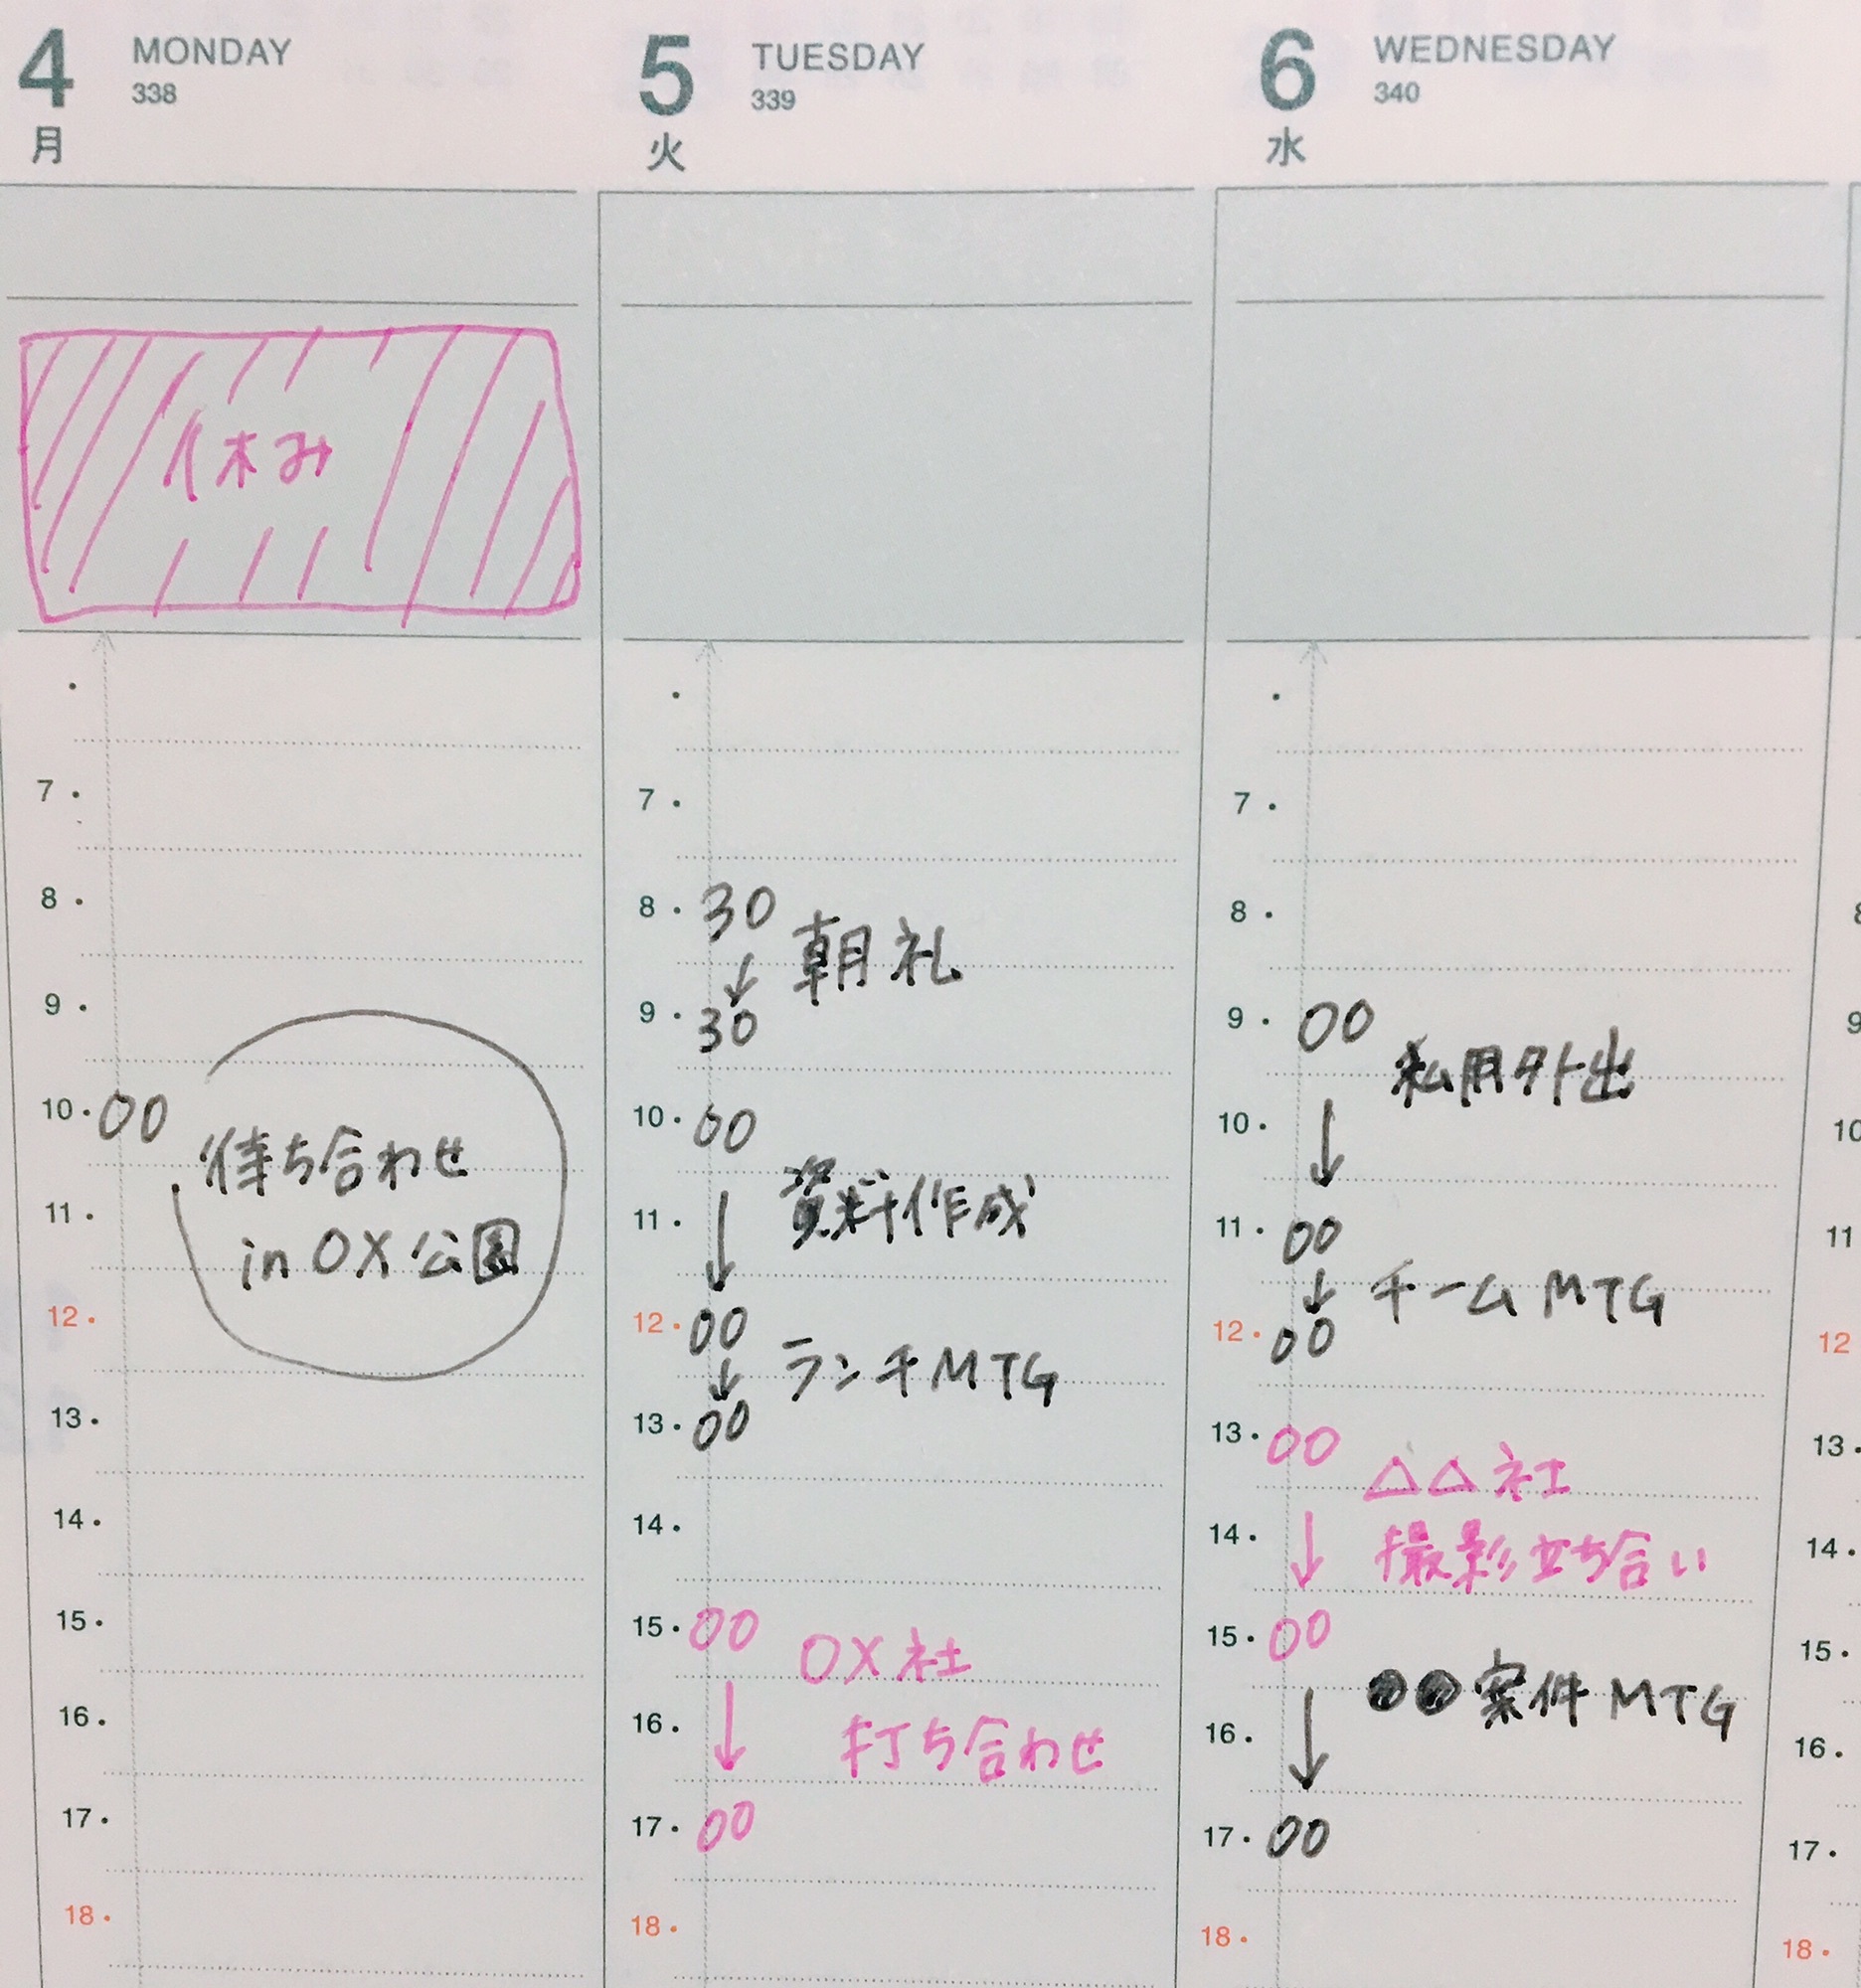 4 MONDAY
338
月
休み
7
8
9
10 00
待ち合わせ
11
in OX公園
12
13
14
15
16
17
18
5 TUESDAY
339
火
7
8 30
↓ 朝礼
9 30
10 00
資料作成
11 ↓
12 00
↓ ランチMTG
13 00
14
15 00
OX社
16 ↓ 打ち合わせ
17 00
18
6 WEDNESDAY
340
水
7
8
9 00
私用外出
10 ↓
11 00
↓ チームMTG
12 00
13 00
△△社
14 ↓ 撮影立ち合い
15 00
●●案件MTG
16 ↓
17 00
18
8
9
10
11
12
13
14
15
16
17
18